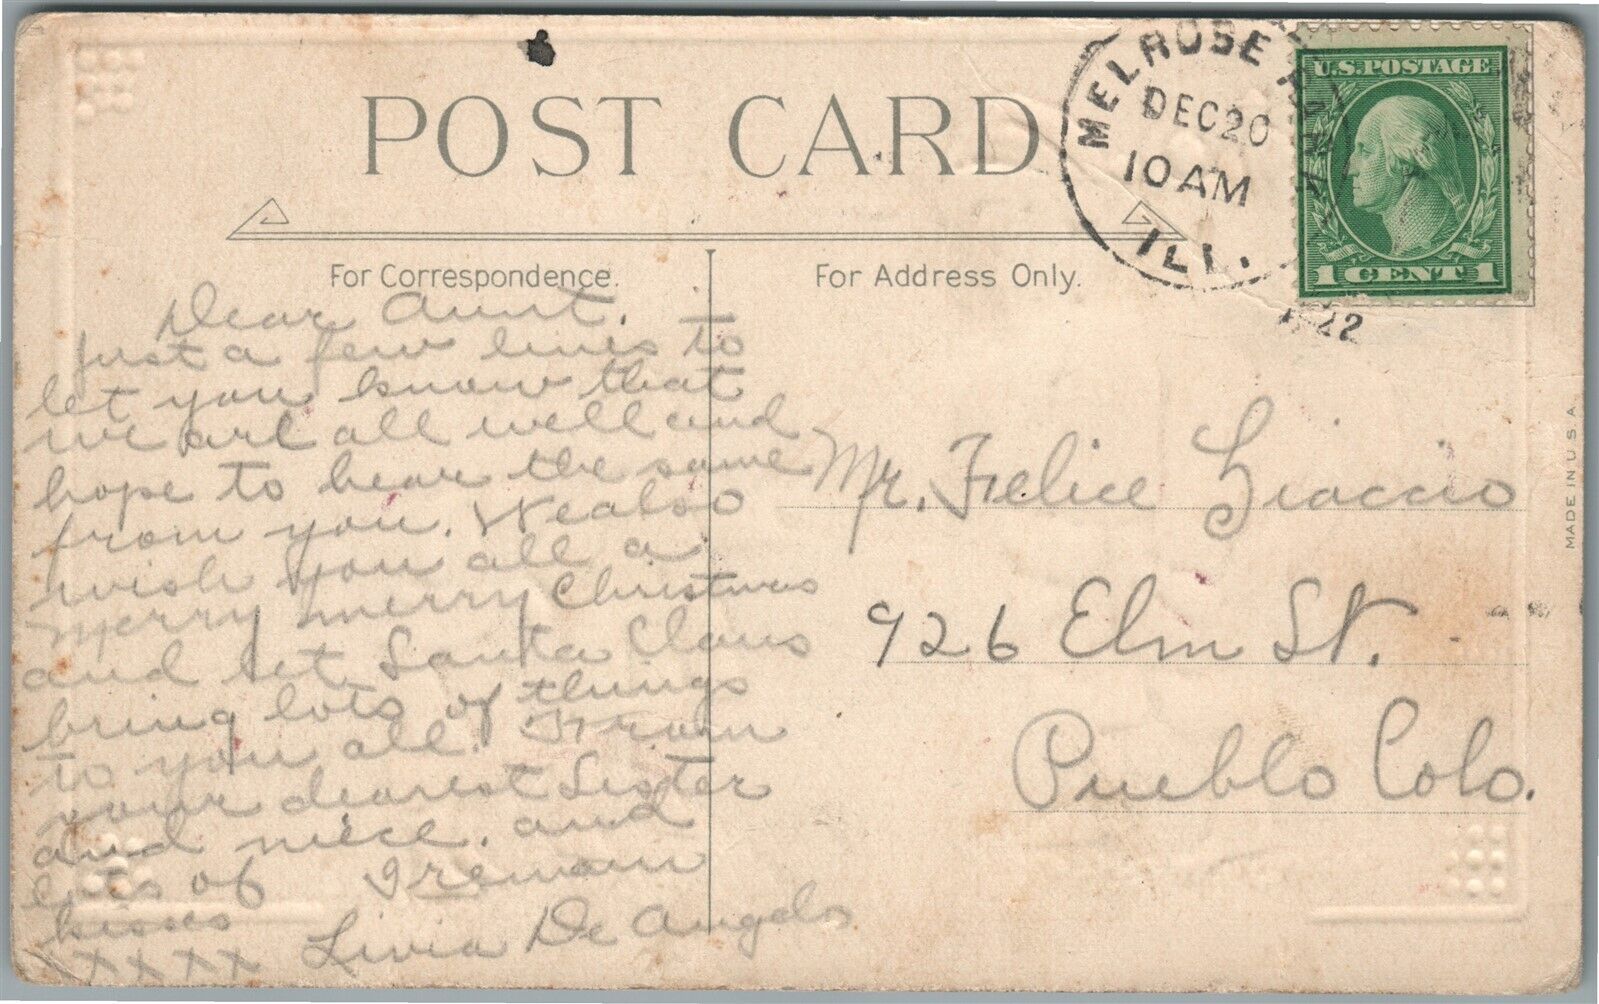 POST CARD
For Correspondence.
For Address Only.
MELROSE PARK
DEC 20
10 AM
ILL.
1922
U.S. POSTAGE
1 CENT 1
Dear Aunt.
Just a few lines to
let you know that
we are all well and
hope to hear the same
from you. We also
wish you all a
Merry merry Christmas
and let Santa Claus
bring lots of things
to you all. From
your dearest Sister
and niece. and
lots of I remain
kisses
xxxx Livia De Angelo
Mr. Felice
926 Elm St.
Pueblo Colo.
MADE IN U.S.A.